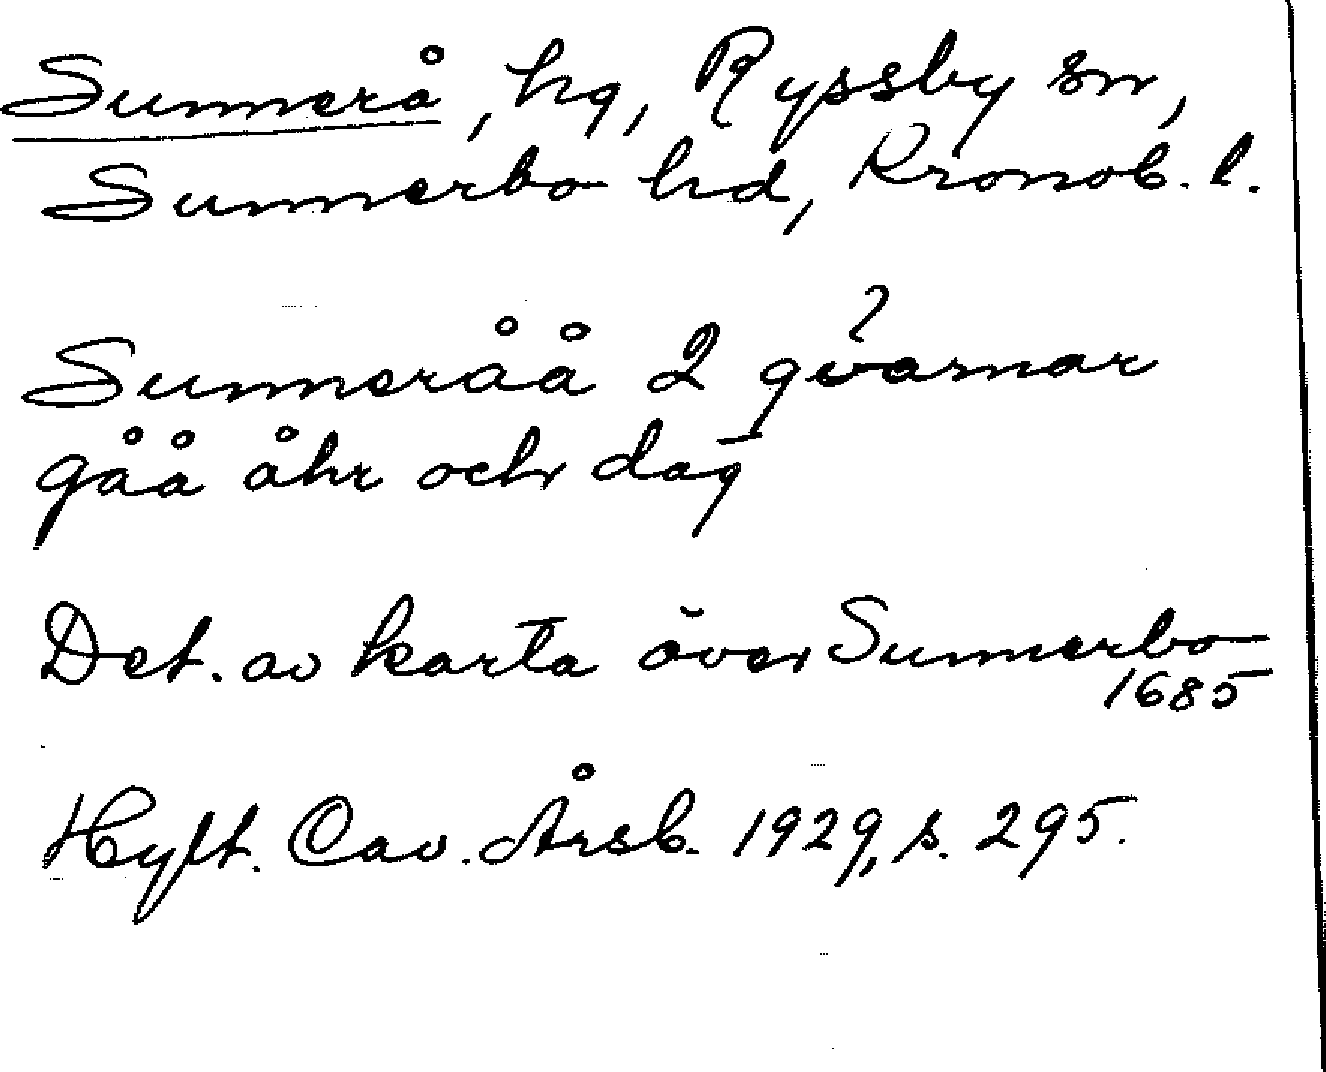 Sunnerå, hg, Ryssby sn,
Sunnerbo hd, Kronob. l.
?
Sunneråå 2 qvarnar
gåå åhr och dag
Det. av karta över Sunnerbo
1685
Hylt. Cav. Årsb. 1929, s. 295.